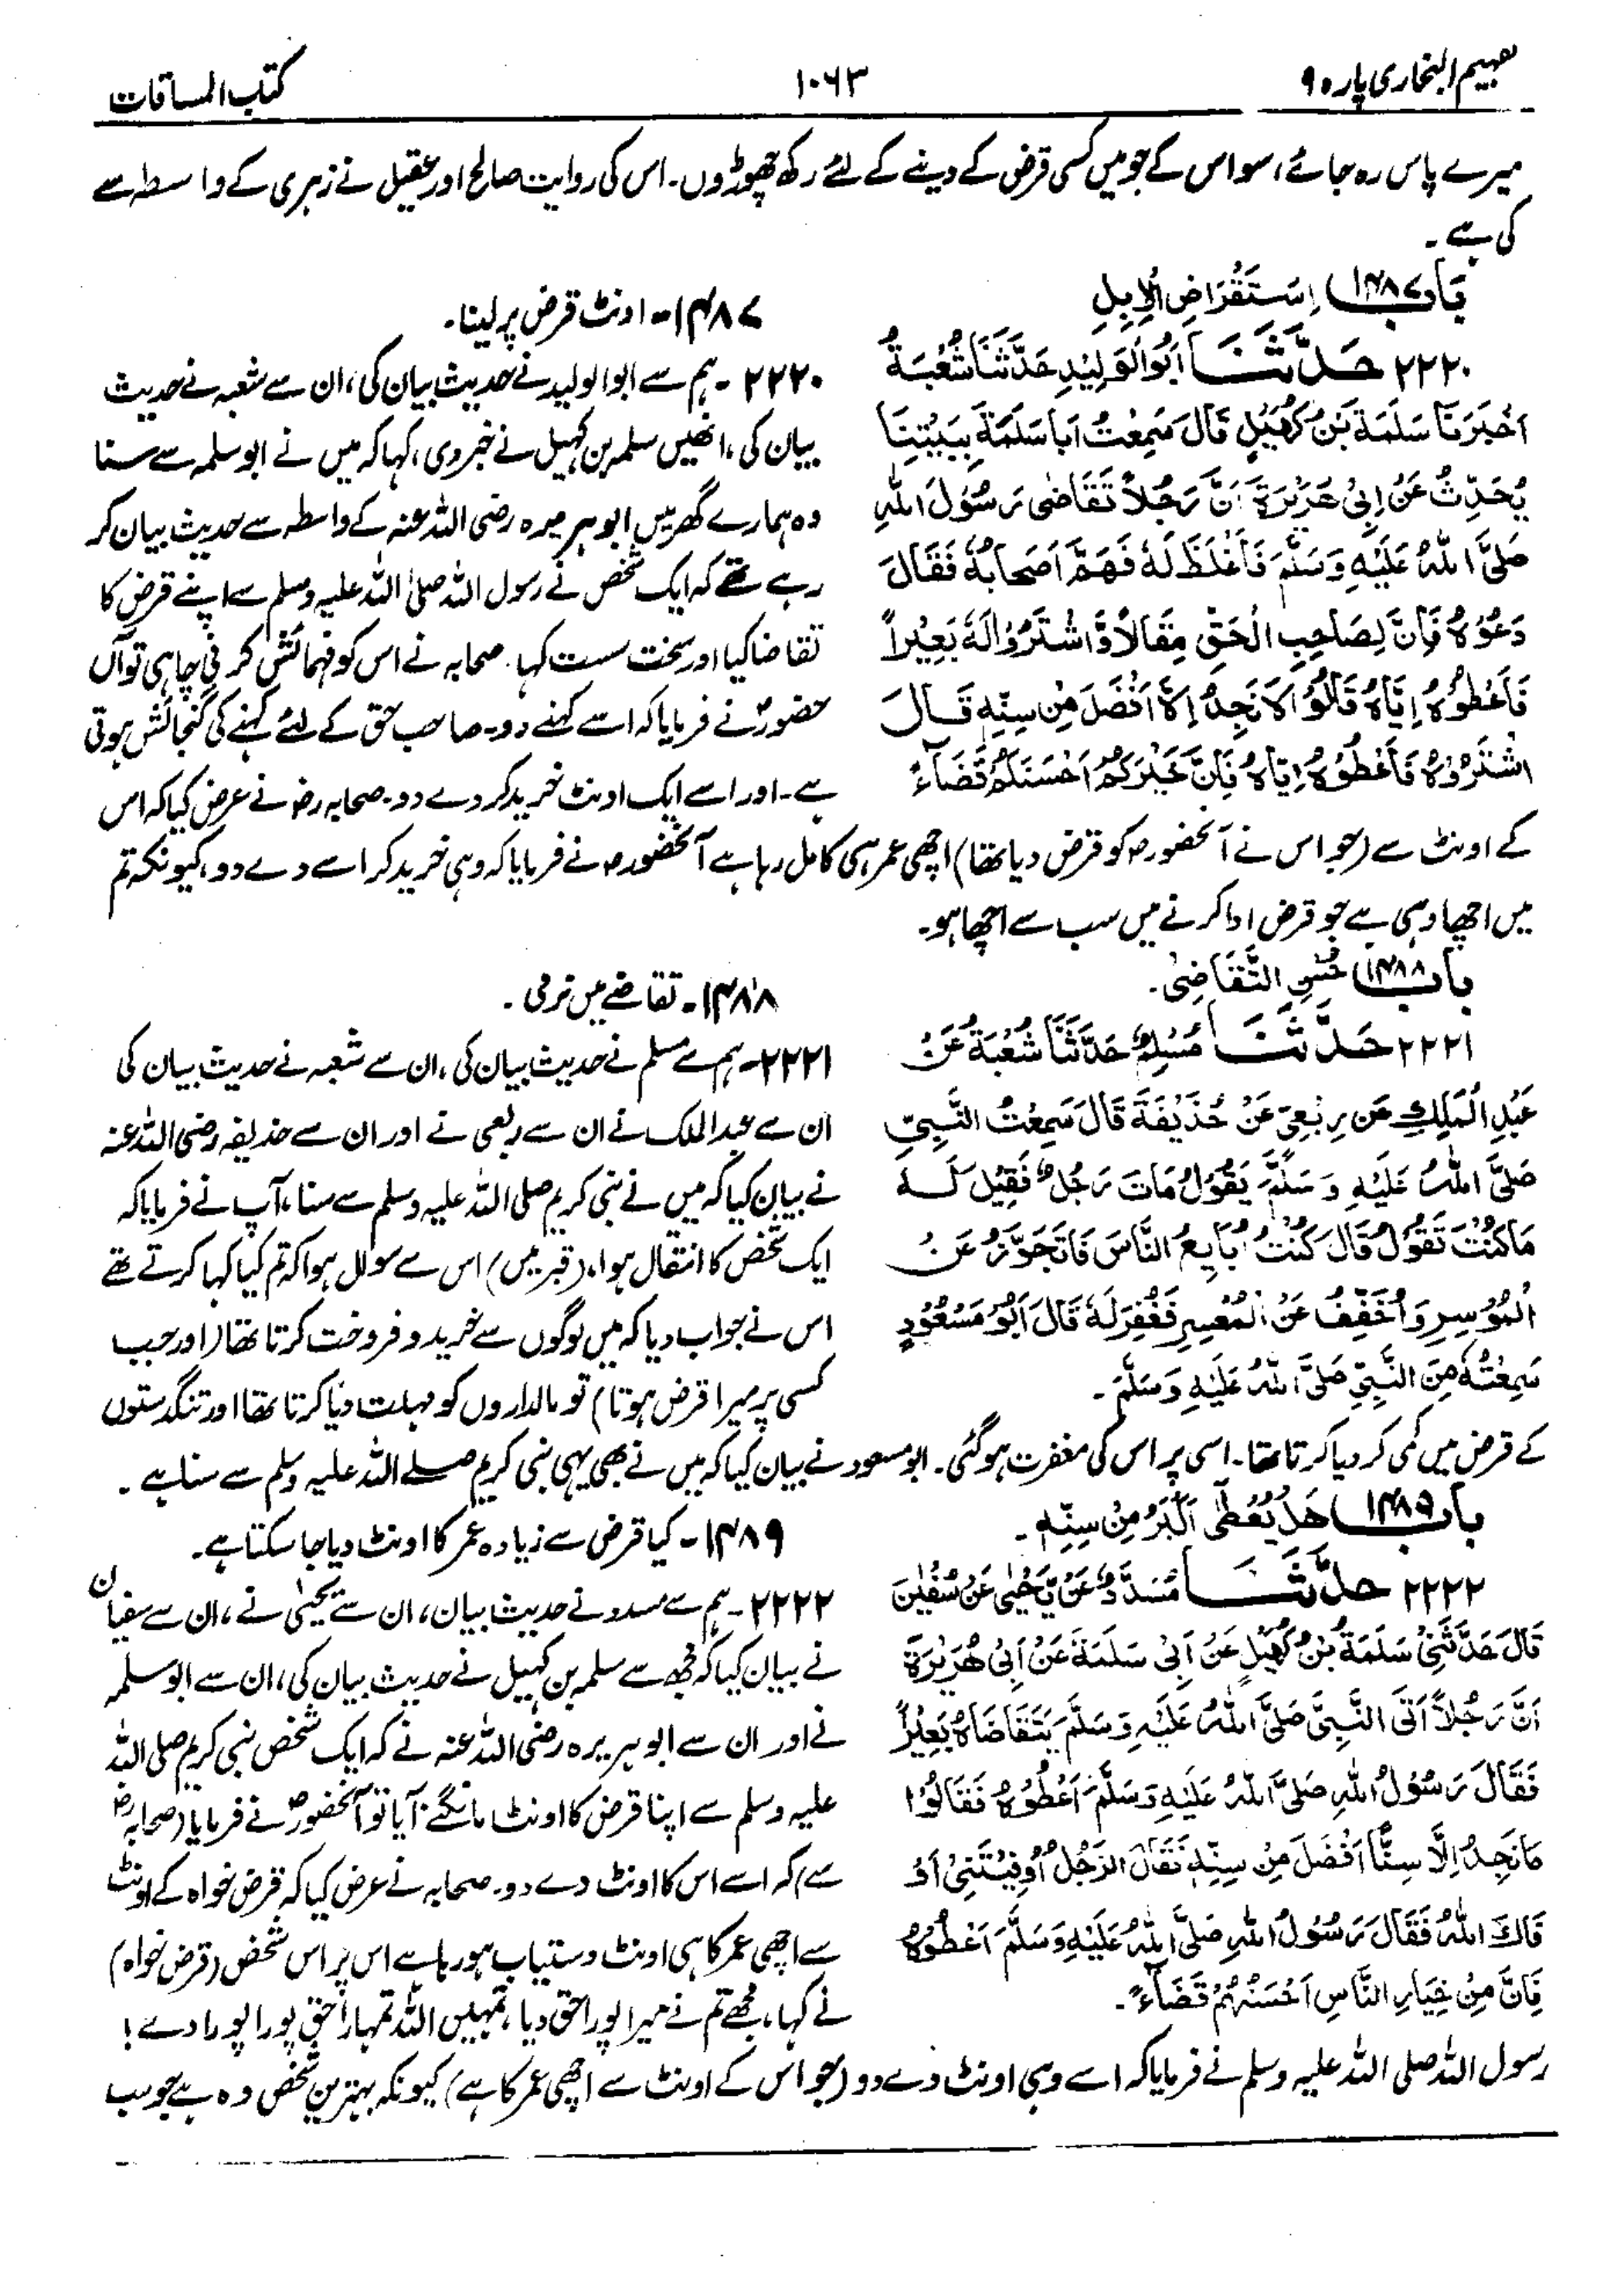 تفہیم البخاری پارہ ۹
۱۰۶۳
کتاب المساقات
میرے پاس رہ جائے، سوا اس کے جو میں کسی قرض کے دینے کے لئے رکھ چھوڑوں۔ اس کی روایت صالح اور عقیل نے زہری کے واسطہ سے
کی ہے۔
بَابُ ۱۴۸۷ اِسْتَقْرَاضِ الْاِبِلِ
۲۲۲۰ حَدَّثَنَا اَبُو الْوَلِيْدِ حَدَّثَنَا شُعْبَةُ
اَخْبَرَنَا سَلَمَةُ بْنُ كُهَيْلٍ قَالَ سَمِعْتُ اَبَا سَلَمَةَ بِبَيْتِنَا
يُحَدِّثُ عَنْ اَبِيْ هُرَيْرَةَ اَنَّ رَجُلاً تَقَاضٰى رَسُوْلَ اللّٰهِ
صَلَّى اللّٰهُ عَلَيْهِ وَسَلَّمَ فَاَغْلَظَ لَهٗ فَهَمَّ اَصْحَابُهٗ فَقَالَ
دَعُوْهُ فَاِنَّ لِصَاحِبِ الْحَقِّ مَقَالاً وَّاشْتَرُوْا لَهٗ بَعِيْراً
فَاَعْطُوْهُ اِيَّاهُ قَالُوْا لَا نَجِدُ اِلَّا اَفْضَلَ مِنْ سِنِّهٖ قَالَ
اشْتَرُوْهُ فَاَعْطُوْهُ اِيَّاهُ فَاِنَّ خَيْرَكُمْ اَحْسَنُكُمْ قَضَآءً
۱۴۸۷۔ اونٹ قرض پر لینا۔
۲۲۲۰۔ ہم سے ابو الولید نے حدیث بیان کی، ان سے شعبہ نے حدیث
بیان کی، انھیں سلمہ بن کہیل نے خبر دی، کہا کہ میں نے ابو سلمہ سے سنا
وہ ہمارے گھر میں ابو ہریرہ رضی اللہ عنہ کے واسطہ سے حدیث بیان کر
رہے تھے کہ ایک شخص نے رسول اللہ صلی اللہ علیہ وسلم سے اپنے قرض کا
تقاضا کیا اور سخت سست کہا۔ صحابہ نے اس کو فہمائش کرنی چاہی تو آں
حضورؐ نے فرمایا کہ اسے کہنے دو۔ صاحب حق کے لئے کہنے کی گنجائش ہوتی
ہے۔ اور اسے ایک اونٹ خرید کر دے دو۔ صحابہ رضؓ نے عرض کیا کہ اس
کے اونٹ سے (جو اس نے آنحضورؐ کو قرض دیا تھا) اچھی عمر ہی کا مل رہا ہے آنحضورؐ نے فرمایا کہ وہی خرید کر اسے دے دو، کیونکہ تم
میں اچھا وہی ہے جو قرض ادا کرنے میں سب سے اچھا ہو۔
بَابُ ۱۴۸۸ حُسْنِ التَّقَاضِیْ۔
۲۲۲۱ حَدَّثَنَا مُسْلِمٌ حَدَّثَنَا شُعْبَةُ عَنْ
عَبْدِ الْمَلِكِ عَنْ رِبْعِيٍّ عَنْ حُذَيْفَةَ قَالَ سَمِعْتُ النَّبِيَّ
صَلَّى اللّٰهُ عَلَيْهِ وَسَلَّمَ يَقُوْلُ مَاتَ رَجُلٌ فَقِيْلَ لَهٗ
مَا كُنْتَ تَقُوْلُ قَالَ كُنْتُ اُبَايِعُ النَّاسَ فَاَتَجَوَّزُ عَنْ
الْمُوْسِرِ وَاُخَفِّفُ عَنِ الْمُعْسِرِ فَغُفِرَ لَهٗ قَالَ اَبُوْ مَسْعُوْدٍ
سَمِعْتُهٗ مِنَ النَّبِيِّ صَلَّى اللّٰهُ عَلَيْهِ وَسَلَّمَ۔
۱۴۸۸۔ تقاضے میں نرمی۔
۲۲۲۱۔ ہم سے مسلم نے حدیث بیان کی، ان سے شعبہ نے حدیث بیان کی
ان سے عبد الملک نے ان سے ربعی نے اور ان سے حذیفہ رضی اللہ عنہ
نے بیان کیا کہ میں نے نبی کریم صلی اللہ علیہ وسلم سے سنا، آپ نے فرمایا کہ
ایک شخص کا انتقال ہوا، (قبر میں) اس سے سوال ہوا کہ تم کیا کہا کرتے تھے
اس نے جواب دیا کہ میں لوگوں سے خرید و فروخت کرتا تھا (اور جب
کسی پر میرا قرض ہوتا) تو مالداروں کو مہلت دیا کرتا تھا اور تنگدستوں
کے قرض میں کمی کر دیا کرتا تھا۔ اسی پر اس کی مغفرت ہو گئی۔ ابو مسعود نے بیان کیا کہ میں نے بھی یہی نبی کریم صلے اللہ علیہ وسلم سے سنا ہے۔
بَابُ ۱۴۸۹ هَلْ يُعْطٰى اَكْبَرُ مِنْ سِنِّهٖ۔
۲۲۲۲ حَدَّثَنَا مُسَدَّدٌ عَنْ يَّحْيٰى عَنْ سُفْيٰنَ
قَالَ حَدَّثَنِيْ سَلَمَةُ بْنُ كُهَيْلٍ عَنْ اَبِيْ سَلَمَةَ عَنْ اَبِيْ هُرَيْرَةَ
اَنَّ رَجُلاً اَتَى النَّبِيَّ صَلَّى اللّٰهُ عَلَيْهِ وَسَلَّمَ يَتَقَاضَاهُ بَعِيْراً
فَقَالَ رَسُوْلُ اللّٰهِ صَلَّى اللّٰهُ عَلَيْهِ وَسَلَّمَ اَعْطُوْهُ فَقَالُوْا
مَا نَجِدُ اِلَّا سِنًّا اَفْضَلَ مِنْ سِنِّهٖ فَقَالَ الرَّجُلُ اَوْفَيْتَنِيْ اَوْ
فَاكَ اللّٰهُ فَقَالَ رَسُوْلُ اللّٰهِ صَلَّى اللّٰهُ عَلَيْهِ وَسَلَّمَ اَعْطُوْهُ
فَاِنَّ مِنْ خِيَارِ النَّاسِ اَحْسَنُهُمْ قَضَآءً۔
۱۴۸۹۔ کیا قرض سے زیادہ عمر کا اونٹ دیا جا سکتا ہے۔
۲۲۲۲۔ ہم سے مسدد نے حدیث بیان، ان سے یحیٰی نے، ان سے سفیان
نے بیان کیا کہ مجھ سے سلمہ بن کہیل نے حدیث بیان کی، ان سے ابو سلمہ
نے اور ان سے ابو ہریرہ رضی اللہ عنہ نے کہ ایک شخص نبی کریم صلی اللہ
علیہ وسلم سے اپنا قرض کا اونٹ مانگنے آیا تو آنحضورؐ نے فرمایا (صحابہؓ
سے) کہ اسے اس کا اونٹ دے دو۔ صحابہ نے عرض کیا کہ قرض خواہ کے اونٹ
سے اچھی عمر کا ہی اونٹ دستیاب ہو رہا ہے اس پر اس شخص (قرض خواہ)
نے کہا، مجھے تم نے میرا پورا حق دیا، تمہیں اللہ تمہارا حق پورا پورا دے!
رسول اللہ صلی اللہ علیہ وسلم نے فرمایا کہ اسے وہی اونٹ دے دو (جو اس کے اونٹ سے اچھی عمر کا ہے) کیونکہ بہترین شخص وہ ہے جو سب